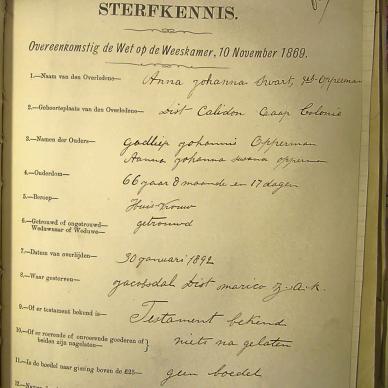 STERFKENNIS.
Overeenkomstig de Wet op de Weeskamer, 10 November 1869.
1.—Naam van den Overledene— Anna Johanna Swart, geb. Opperman
2.—Geboorteplaats van den Overledene— Dist Calidon Caap Colonie
3.—Namen der Ouders— Godliep Johannis Opperman
Hanna Johanna Susana Opperman
4.—Ouderdom— 66 jaar 8 maande en 17 dagen
5.—Beroep— Huis Vrouw
6.—Getrouwd of ongetrouwd— getrouwd
Weduwnaar of Weduwe—
7.—Datum van overlijden— 30 januari 1892
8.—Waar gestorven— Jacobsdal Dist Marico Z. A. R.
9.—Of er testament bekend is— Testament bekend
10.—Of er roerende of onroerende goederen of
beiden zijn nagelaten— } niets na gelaten
11.—Is de boedel naar gissing boven de £25— geen boedel